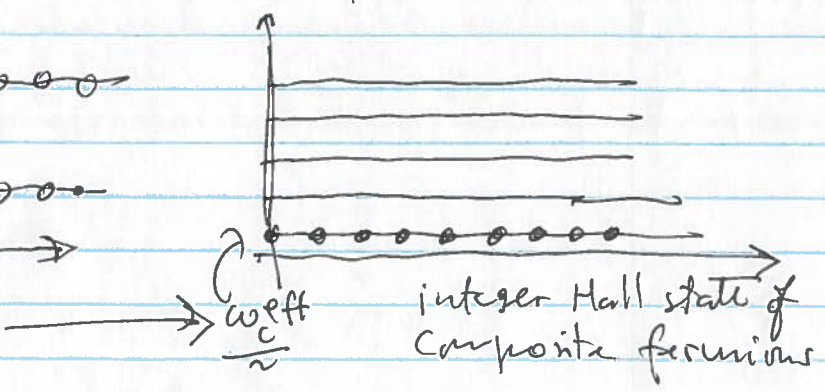 ω_c^eff
2
integer Hall state of
Composite fermions